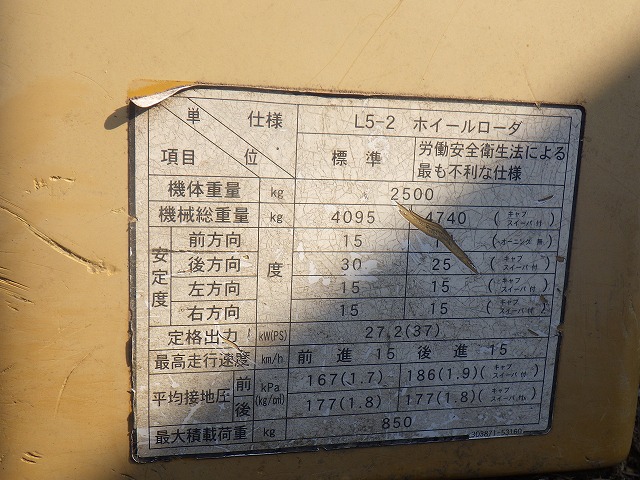 単 仕様 L5-2 ホイールローダ
項目 位 標準 労働安全衛生法による
最も不利な仕様
機体重量 kg 2500
機械総重量 kg 4095 4740 (キャブ スイーパ付)
安定度 前方向 度 15 (オーニング 無)
後方向 30 25 (キャブ スイーパ付)
左方向 15 15 (キャブ スイーパ付)
右方向 15 15 (キャブ スイーパ付)
定格出力 kW(PS) 27.2(37)
最高走行速度 km/h 前進 15 後進 15
平均接地圧 前 kPa (kg/cm²) 167(1.7) 186(1.9) (キャブ スイーパ付)
後 177(1.8) 177(1.8) (キャブ スイーパ付)
最大積載荷重 kg 850
303871-53160